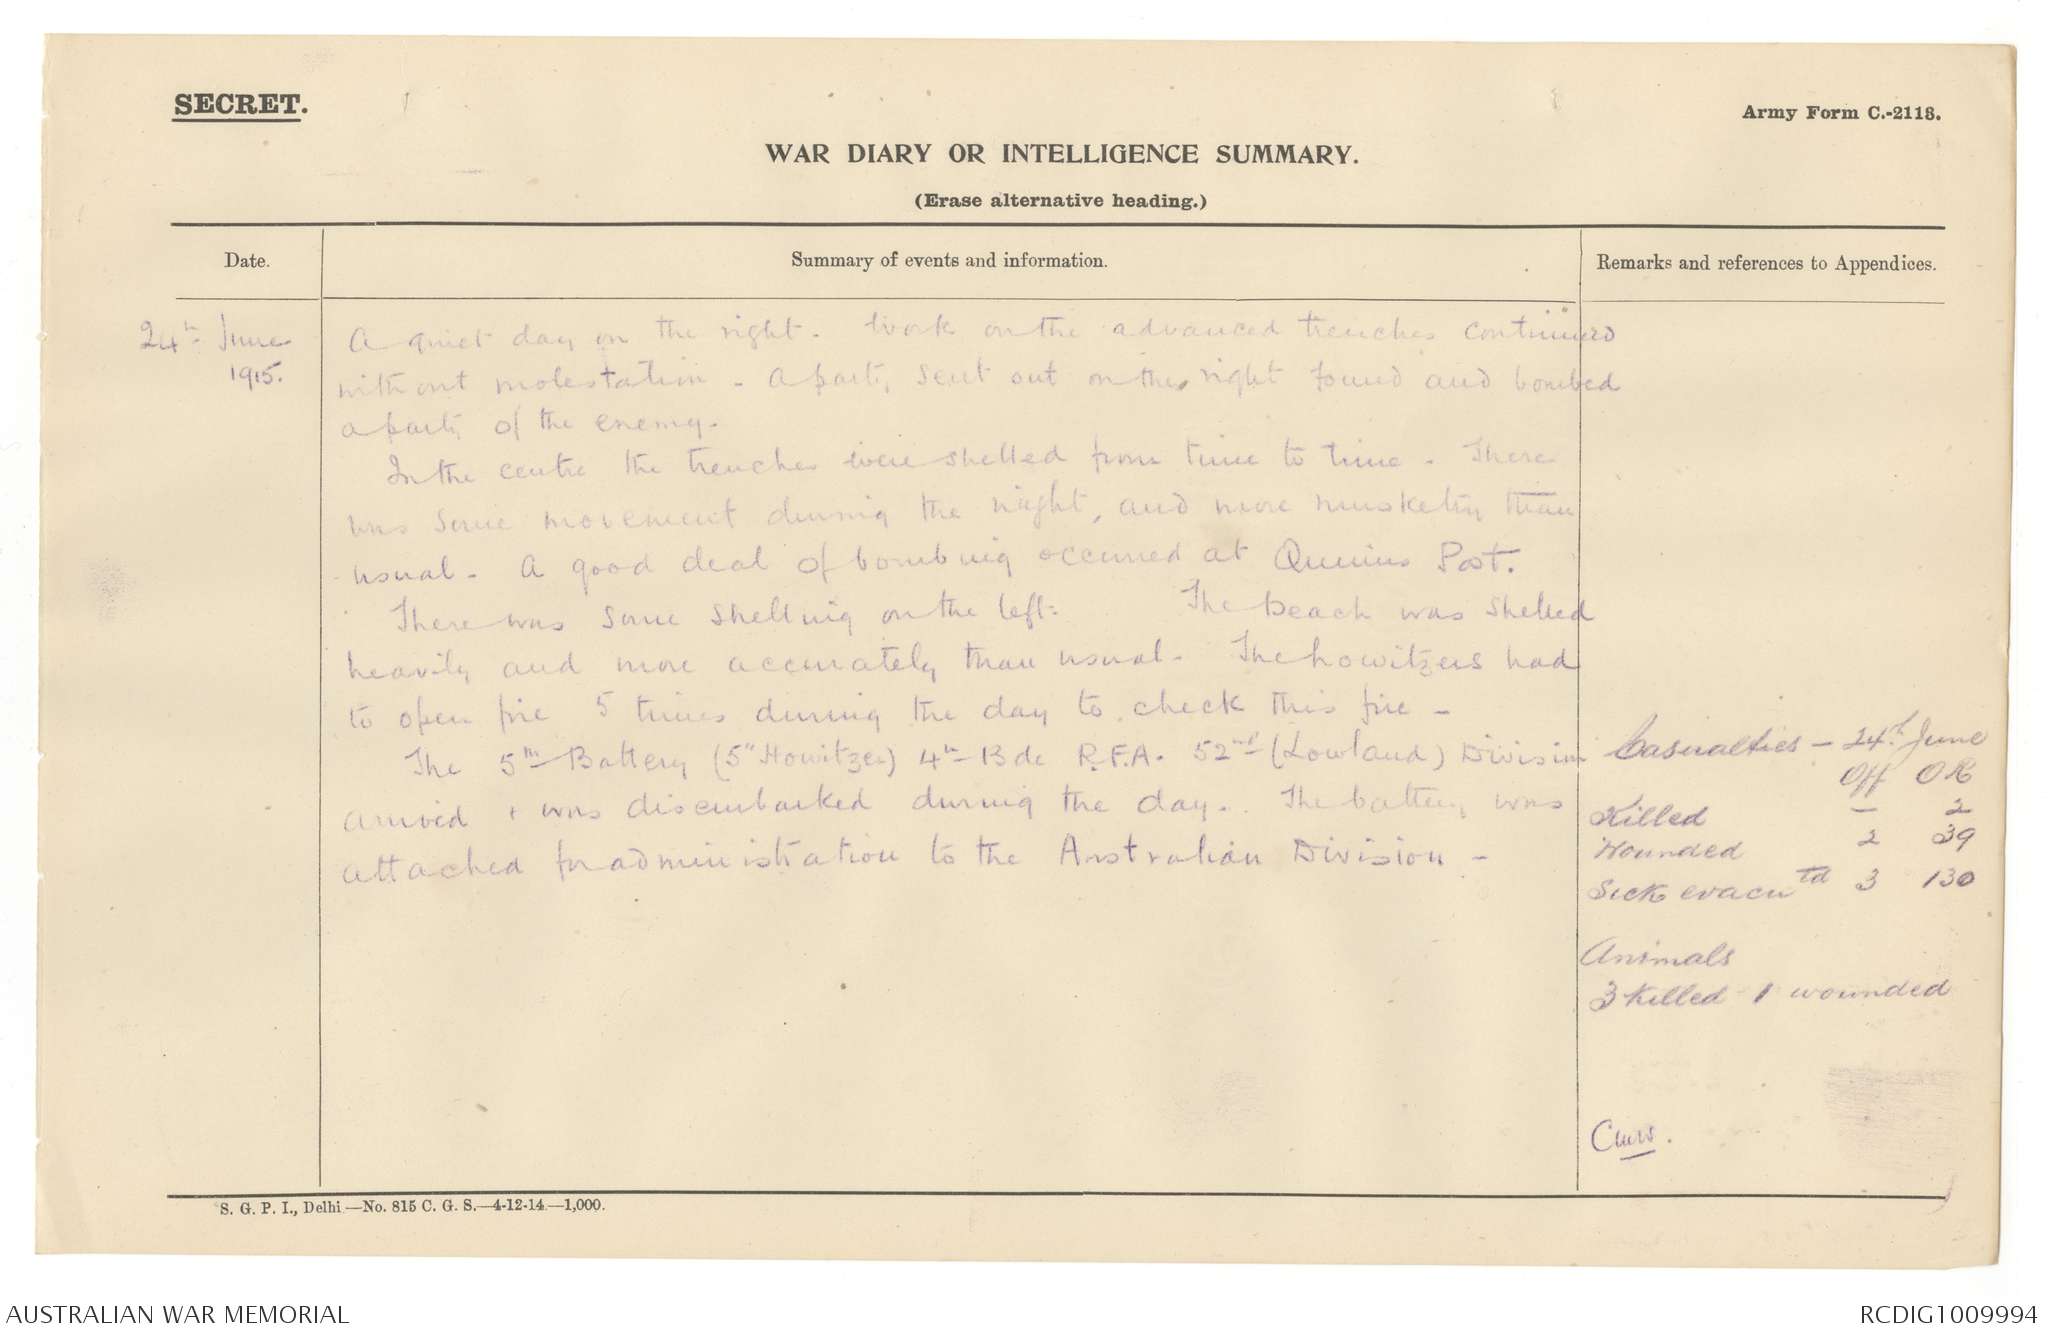 SECRET.
Army Form C.-2118.
WAR DIARY OR INTELLIGENCE SUMMARY.
(Erase alternative heading.)
Date.
Summary of events and information.
Remarks and references to Appendices.
24th June
1915.
A quiet day on the right. Work on the advanced trenches continued
without molestation - A party sent out on the right found and bombed
a party of the enemy.
In the centre the trenches were shelled from time to time. There
was some movement during the night, and more musketry than
usual. A good deal of bombing occurred at Quinns Post.
There was some shelling on the left. The beach was shelled
heavily and more accurately than usual. The howitzers had
to open fire 5 times during the day to check this fire -
The 5th Battery (5" Howitzer) 4th Bde R.F.A. 52nd (Lowland) Division
arrived + was disembarked during the day. The battery was
attached for administration to the Australian Division -
Casualties - 24th June
Off OR
Killed - 2
Wounded 2 39
Sick evacutd 3 130
Animals
3 Killed 1 wounded
S. G. P. I., Delhi.—No. 815 C. G. S.—4-12-14.—1,000.
AUSTRALIAN WAR MEMORIAL
RCDIG1009994